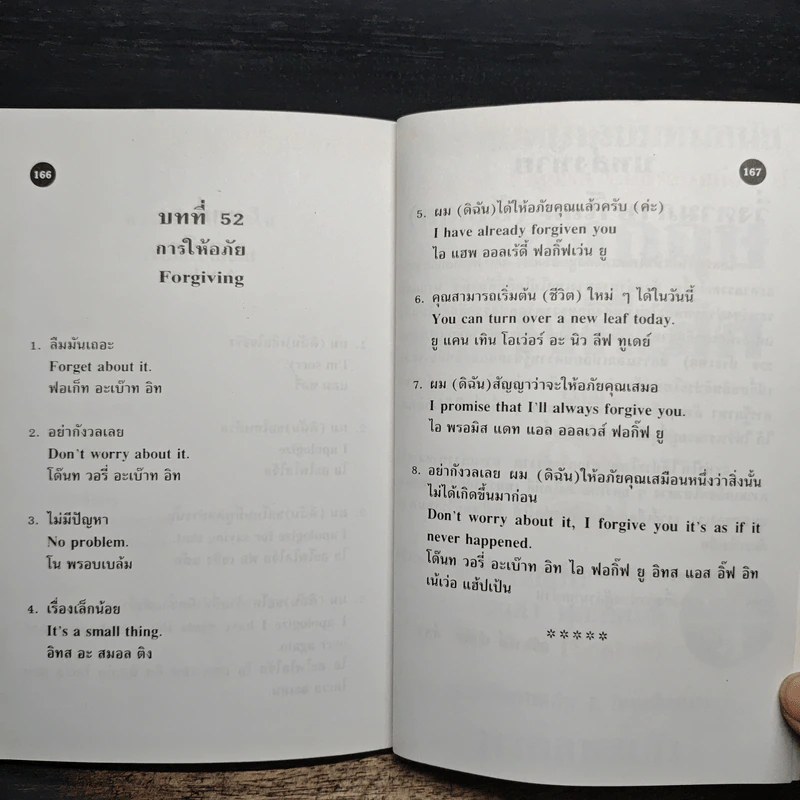 166
บทที่ 52
การให้อภัย
Forgiving
1. ลืมมันเถอะ
Forget about it.
ฟอเก็ท อะเบ๊าท อิท
2. อย่ากังวลเลย
Don't worry about it.
โด๊นท วอรี่ อะเบ๊าท อิท
3. ไม่มีปัญหา
No problem.
โน พรอบเบล้ม
4. เรื่องเล็กน้อย
It's a small thing.
อิทส อะ สมอล ติง
167
5. ผม (ดิฉัน)ได้ให้อภัยคุณแล้วครับ (ค่ะ)
I have already forgiven you
ไอ แฮพ ออลเร้ดี้ ฟอกิ๊ฟเว่น ยู
6. คุณสามารถเริ่มต้น (ชีวิต) ใหม่ ๆ ได้ในวันนี้
You can turn over a new leaf today.
ยู แคน เทิน โอเว่อร์ อะ นิว ลีฟ ทูเดย์
7. ผม (ดิฉัน)สัญญาว่าจะให้อภัยคุณเสมอ
I promise that I'll always forgive you.
ไอ พรอมิส แดท แอล ออลเวส์ ฟอกิ๊ฟ ยู
8. อย่ากังวลเลย ผม (ดิฉัน)ให้อภัยคุณเสมือนหนึ่งว่าสิ่งนั้น
ไม่ได้เกิดขึ้นมาก่อน
Don't worry about it, I forgive you it's as if it
never happened.
โด๊นท วอรี่ อะเบ๊าท อิท ไอ ฟอกิ๊ฟ ยู อิทส แอส อิ๊ฟ อิท
เน้เว่อ แฮ้ปเป้น
*****